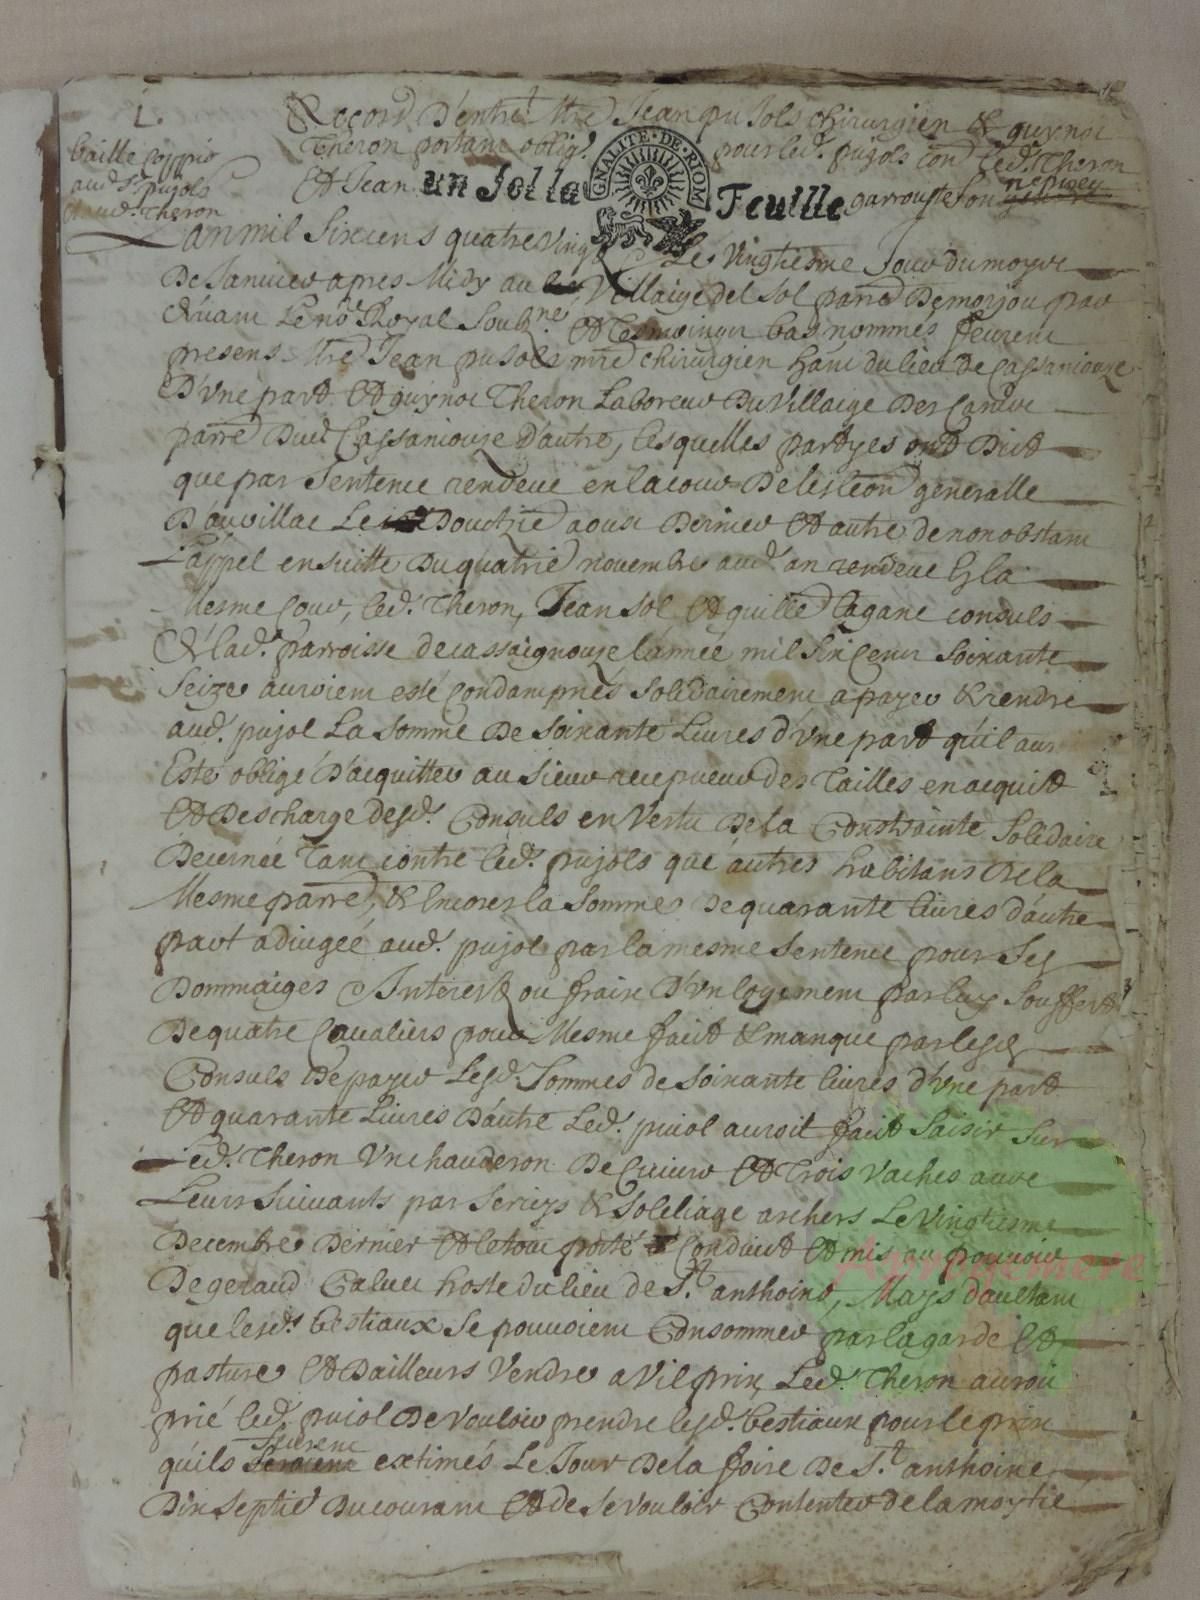 1.
Accord d'entre Mre Jean pujols chirurgien & guynot
Theron portant oblig. pour led. pujols con. led. Theron
Et Jean garrouste son nepveu
baillé coppie
aud. Sr pujols
& aud. Theron
GNALITE·DE·RIOM
un Sol la Feuille
L'an mil Sixcens quatre vingt Le Vingtiesme Jour du moys
De Janvier apres Midy au Villaige del Sol parre De morjou par
devant Le nore Royal Soubne Et Tesmoingz bas nommes feurent
presens Mre Jean pujols mre chirurgien hant du lieu de Cassaniouze
D'Une part Et guynot Theron Laboreur Du Villaige Des Camtve
parre Dud Cassaniouze d'autre, Lesquelles partyes ont Dict
que par Sentence rendeue en la cour De leslecon generalle
D'aurillac Le Doutzie aoust Dernier Et autre de nonobstant
L'appel ensuitte Du quatrie novembre aud. an rendeue En la
Mesme Cour, led. Theron, Jean Sol Et guille lagane consuls
de lad. parroisse de cassaignouze l'année mil Six Cens Soixante
Seize auroient esté Condampnés Solidairement a payer & rendre
aud. pujol La Somme De Soixante Livres d'Une part qu'il aur
Esté obligé D'acquitter au Sieur recepveur des Tailles en acquit
Et Descharge desd. Consuls en Vertu De la Constrainte Solidaire
Decernée Tant contre led. pujols que autres habitans De la
Mesme parre, & Encores la Somme De quarante livres d'autre
part adiugée aud. pujol par la mesme Sentence pour Ses
Dommaiges Interest ou fraix D'Un logement par luy Souffert
De quatre Cavaliers pour Mesme faict & manque par lesd
Consuls De payer Lesd. Sommes de Soixante livres d'Une part
Et quarante Livres D'autre Led. pujol auroit faict Saisir Sur
Led. Theron Un chauderon De Cuivre Et Trois Vaches avec
Leurs Suivants par Serieys & Soleliage archers Le Vingtiesme
Decembre Dernier Et le tout porté Conduict Et mis au pouvoir
De geraud Calvet hoste du lieu de St. anthoine, Mays d'aultant
que lesd. bestiaux Se pouvoient Consommer par la garde Et
pasture Et D'ailleurs Vendre a Vil prix, Led. Theron auroit
prié led. pujol De Vouloir prendre lesd. bestiaux pour le prix
qu'ils feurent Seroient extimés Le Jour De la foire De St. anthoine
Dix Septie Du courant Et de Se vouloir Contenter de la moytié
Auvergnemere